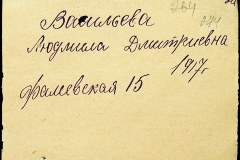 Васильева
Людмила Дмитриевна
1917г
Фалевская 15